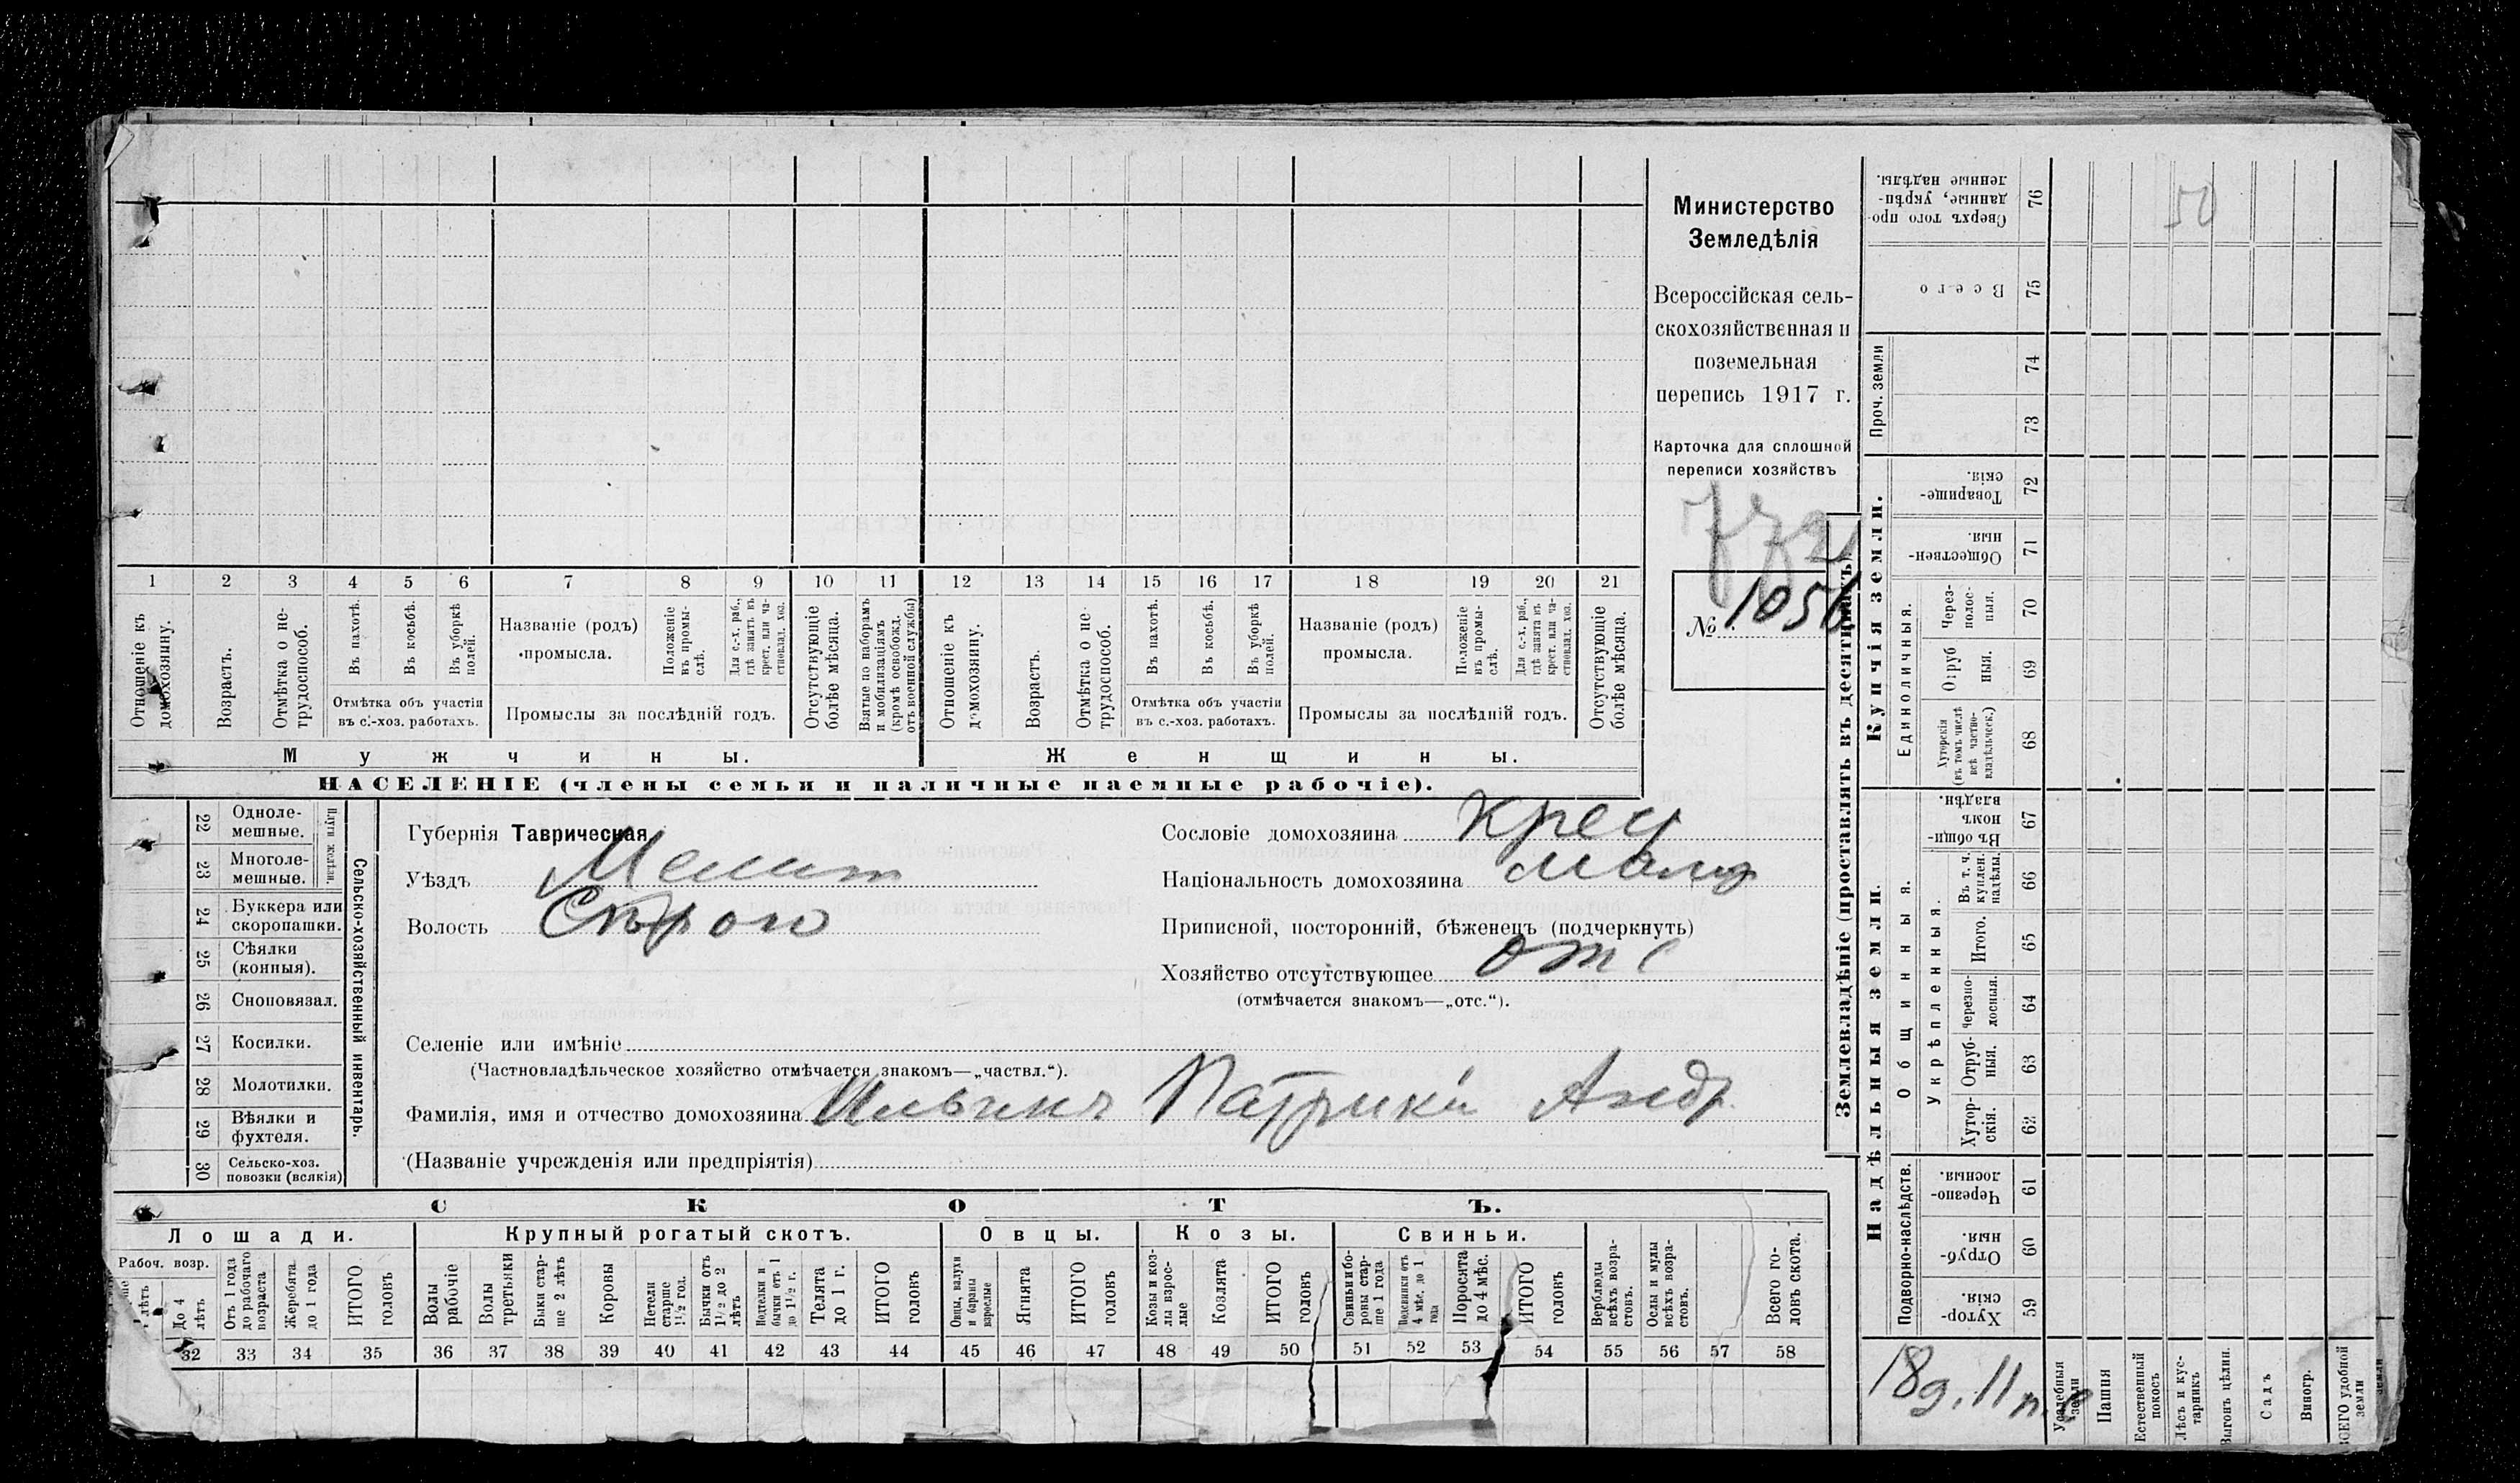 1 2 3 4 5 6 7 8 9 10 11 12 13 14 15 16 17 18 19 20 21
Отношеніе къ домохозяину.
Возрастъ.
Отмѣтка о не-трудоспособ.
Въ пахотѣ.
Въ косьбѣ.
Въ уборкѣ полей.
Отмѣтка объ участіи въ с.-хоз. работахъ.
Названіе (родъ) промысла.
Положеніе въ промы-слѣ.
Для с.-х. раб., гдѣ занятъ въ крест. или ча-стновлад. хоз.
Промыслы за послѣдній годъ.
Отсутствующіе болѣе мѣсяца.
Взятые по наборамъ и мобилизаціямъ (кромѣ освобожд. отъ военной службы)
Отношеніе къ домохозяину.
Возрастъ.
Отмѣтка о не-трудоспособ.
Въ пахотѣ.
Въ косьбѣ.
Въ уборкѣ полей.
Отмѣтка объ участіи въ с.-хоз. работахъ.
Названіе (родъ) промысла.
Положеніе въ промы-слѣ.
Для с.-х. раб., гдѣ занята въ крест. или ча-стновлад. хоз.
Промыслы за послѣдній годъ.
Отсутствующіе болѣе мѣсяца.
Мужчины.
Женщины.
НАСЕЛЕНІЕ (члены семьи и наличные наемные рабочіе).
Министерство
Земледѣлія
Всероссійская сель-
скохозяйственная и
поземельная
перепись 1917 г.
Карточка для сплошной
переписи хозяйствъ
№ 1056
22 Одноле-мешные.
23 Многоле-мешные.
Плуги желѣзн.
24 Буккера или скоропашки.
25 Сѣялки (конныя).
26 Сноповязал.
27 Косилки.
28 Молотилки.
29 Вѣялки и фухтеля.
30 Сельско-хоз. повозки (всякія)
Сельско-хозяйственный инвентарь.
Губернія Таврическая
Уѣздъ Мелит
Волость
Сословіе домохозяина Крес
Національность домохозяина
Приписной, посторонній, бѣженецъ (подчеркнуть)
Хозяйство отсутствующее отс
(отмѣчается знакомъ—„отс.“).
Селеніе или имѣніе
(Частновладѣльческое хозяйство отмѣчается знакомъ—„частвл.“).
Фамилія, имя и отчество домохозяина Ильинъ Патрикій Андр.
(Названіе учрежденія или предпріятія)
СКОТЪ.
Лошади. Крупный рогатый скотъ. Овцы. Козы. Свиньи.
Рабоч. возр.
До 4 лѣтъ
Отъ 1 года до рабочаго возраста
Жеребята до 1 года
ИТОГО головъ
Волы рабочіе
Волы третьяки
Быки стар-ше 2 лѣтъ
Коровы
Нетели старше 1½ год.
Бычки отъ 1½ до 2 лѣтъ
Подтелки и бычки отъ 1 до 1½ г.
Телята до 1 г.
ИТОГО головъ
Овцы, валухи и бараны взрослые
Ягнята
ИТОГО головъ
Козы и коз-лы взрос-лые
Козлята
ИТОГО головъ
Свиньи и бо-ровы стар-ше 1 года
Подсвинки отъ 4 мѣс. до 1 года
Поросята до 4 мѣс.
ИТОГО головъ
Верблюды всѣхъ возра-стовъ.
Ослы и мулы всѣхъ возра-стовъ.
Всего го-ловъ скота.
32 33 34 35 36 37 38 39 40 41 42 43 44 45 46 47 48 49 50 51 52 53 54 55 56 57 58
Землевладѣніе (проставлять въ десятинахъ)
Купчія земли.
Надѣльныя земли.
Сверхъ того про-данные, укрѣп-ленные надѣлы. 76
50
Всего 75
Проч. земли 74
73
Товарище-скія. 72
Обществен-ныя. 71
Единоличныя.
Через-полос-ныя. 70
Отруб-ныя. 69
Хуторскія (въ томъ числѣ всѣ частно-владѣльческ.) 68
Общинныя.
Въ общин-номъ владѣн. 67
Укрѣпленныя.
Въ т. ч. куплен. надѣлы. 66
Итого. 65
Черезпо-лосныя. 64
Отруб-ныя. 63
Хутор-скія. 62
Подворно-наслѣдств.
Черезпо-лосныя. 61
Отруб-ныя. 60
Хутор-скія. 59
18д. 11
Усадебныя земли
Пашня
Естественный покосъ
Лѣсъ и кус-тарникъ
Выгонъ цѣлин.
Садъ
Виногр.
ВСЕГО удобной земли